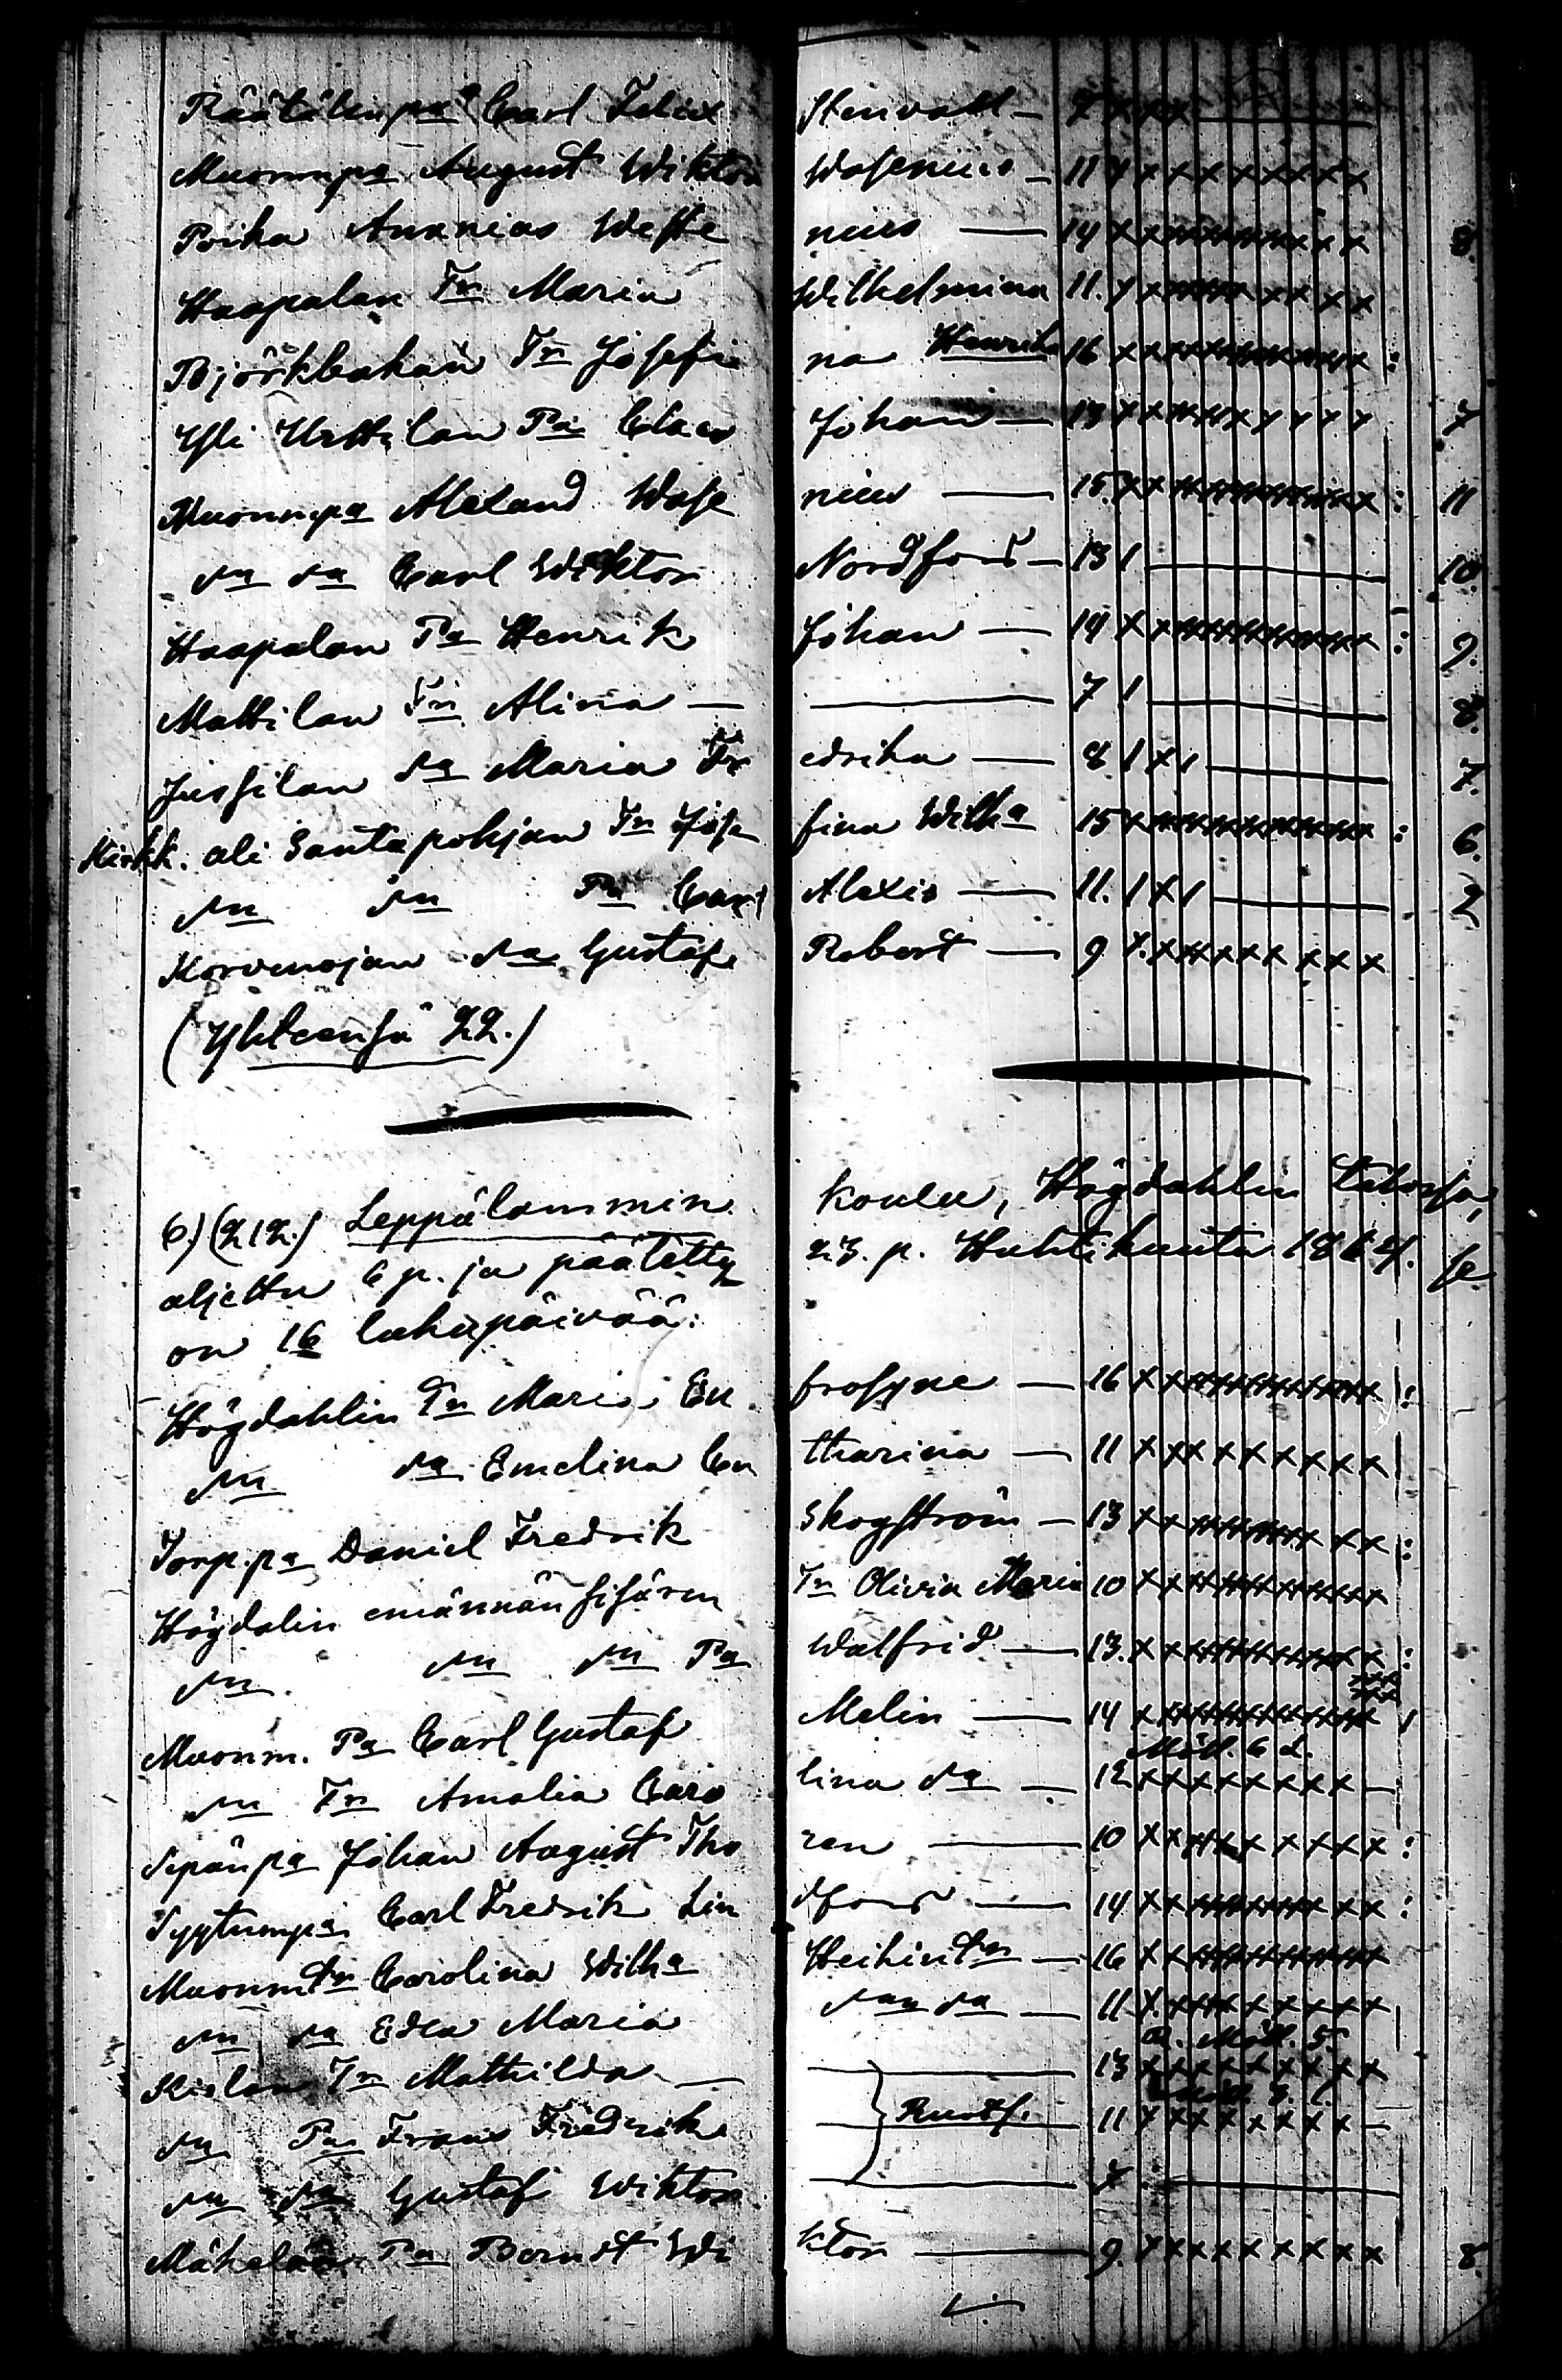 Räätälin pa Carl Felix Stenvall — 7 x x x x
Muonm.pa August Wiktor Wasenius — 11 x x x x x x x x x
Poika Ananias Weste nius — 14 x x x x x x x x x x x 8.
Haapalan Tn Maria Wilhelmina 11. x x x x x x x x x x
Björkbakan Tn Josefi na Henrika 16 x x x x x x x x x x x :
Yli Urttilan Pa Claes Johan — 13 x x x x x x x x x 7
Muonm.pa Aleland Wase nius — 15 x x x x x x x x x x x : 11
sa sa Carl Wiktor Nordfors — 13 1 — 10.
Haapalan Pa Henrik Johan — 14 x x x x x x x x x x x : 9.
Mattilan Tn Alina — 7 1 — 8.
Jussilan sa Maria Fr edrika — 8 1 x 1 — 7.
Kirkk. ali Santapohjan Tn Jose fina Wilha 15 x x x x x x x x x x x : 6.
sn sn Pa Carl Alexis — 11. 1 x 1 — 2
Korvenojan sa Gustaf Robert — 9 x. x x x x x x x x x
(Yhteensä 22.)
6.) (212.) Leppälammin koulu, Högdahlin talossa,
aljettu 6 p. ja päätetty 23. p. Huhtikuuta 1864. se
on 16 lukupäivää:
Högdahlin Tn Maria Eu frosyne — 16 x x x x x x x x x x x :
sn sa Emelina Ca tharina — 11 x x x x x x x x x x
Torp.pa Daniel Fredrik Skogström — 13 x x x x x x x x x x :
Högdalin emännän sisären Tn Olivia Maria 10 x x x x x x x x x x
sn. sn sn Pa Walfrid — 13. x x x x x x x x x x x :
Muonm. Pa Carl Gustaf Melin — 14 x x x x x x x x x x x
sn Tn Amalia Caro lina sa — 12 x x x x x x x x —
Sepän pa Johan August Tho ren — 10 x x x x x x x x x :
Carl Fredrik Lin dfors — 14 x x x x x x x x x x :
Muonm tn Carolina Wilha Heikin tn — 16 x x x x x x x x x x
sn sa Edla Maria san sa — 11 x x x x x x x x x x
Tn Mathilda — 13 x x x x x x x x x
sn Pa Frans Fredrik 11 x x x x x x x x —
sn sa Gustaf Wiktor 7 —
Mäkelän Pa Berndt Wi ktor — 9. x x x x x x x x x x 8.